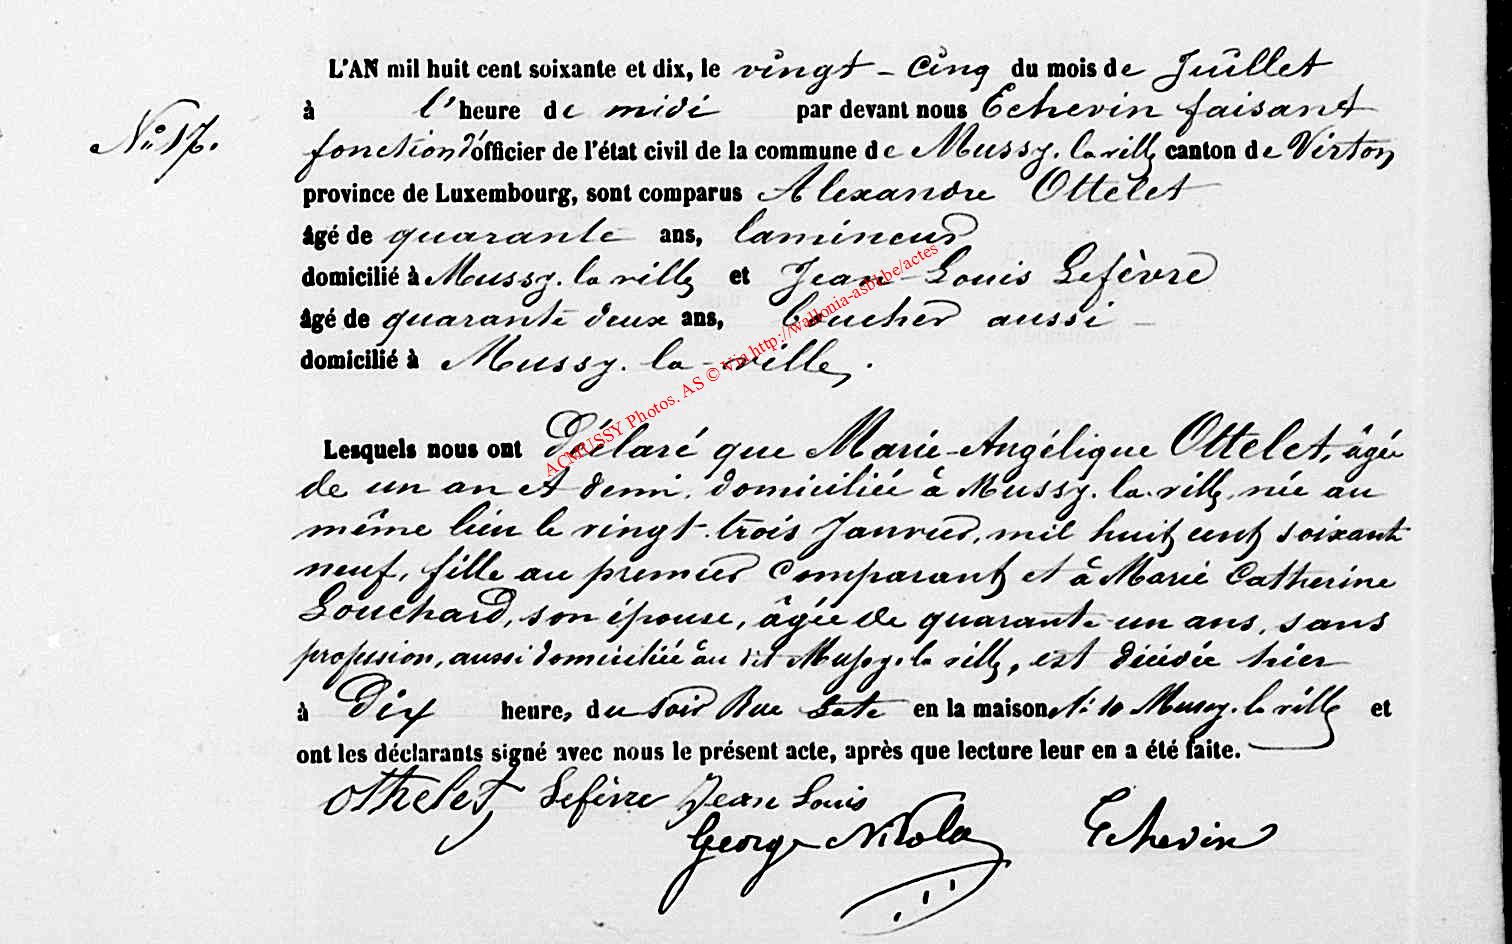 L'AN mil huit cent soixante et dix, le vingt-cinq du mois de Juillet
à l'heure de midi par devant nous Echevin faisant
N° 17. fonction d'officier de l'état civil de la commune de Mussy-la-ville canton de Virton,
province de Luxembourg, sont comparus Alexandre Ottelet
âgé de quarante ans, lamineur
domicilié à Mussy-la-ville et Jean-Louis Lefèvre
âgé de quarante deux ans, boucher aussi
domicilié à Mussy-la-ville.
ACMUSSY Photos. AS © Via http://wallonia-asbl.be/actes
Lesquels nous ont Déclaré que Marie-Angélique Ottelet, âgée
de un an et demi, domiciliée à Mussy-la-ville, née au
même lieu le vingt-trois Janvier, mil huit cent soixante
neuf, fille au premier comparant et à Marie Catherine
Louchard, son épouse, âgée de quarante-un ans, sans
profession, aussi domiciliée au dit Mussy-la-ville, est décédée hier
à Dix heures du soir Rue en la maison N° 10 Mussy-la-ville et
ont les déclarants signé avec nous le présent acte, après que lecture leur en a été faite.
Othelet Lefèvre Jean Louis
George Nicolas Echevin